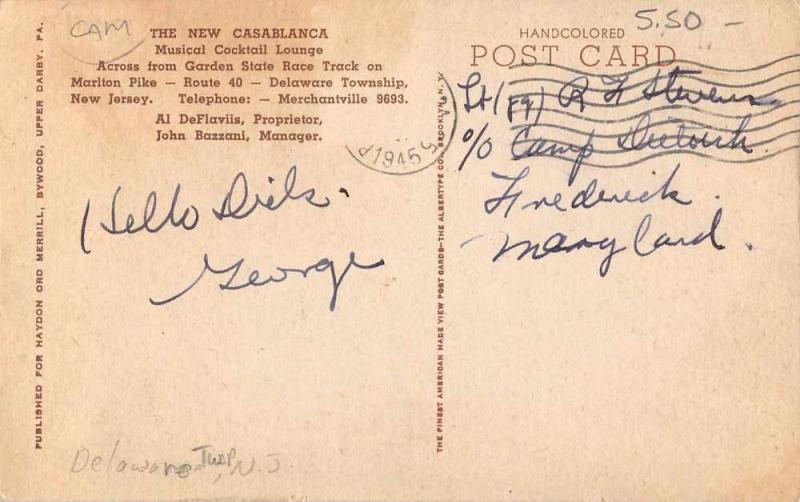 CAM
THE NEW CASABLANCA
Musical Cocktail Lounge
Across from Garden State Race Track on
Marlton Pike — Route 40 — Delaware Township,
New Jersey. Telephone: — Merchantville 9693.
Al DeFlaviis, Proprietor,
John Bazzani, Manager.
Hello Dick.
George
Delaware Twp, N.J.
PUBLISHED FOR HAYDON ORD MERRILL, BYWOOD, UPPER DARBY, PA.
THE FINEST AMERICAN MADE VIEW POST CARDS—THE ALBERTYPE CO., BROOKLYN, N. Y.
5.50 –
HANDCOLORED
POST CARD
1945
Lt. R F Stevens
c/o Camp Detrick
Frederick.
Maryland.